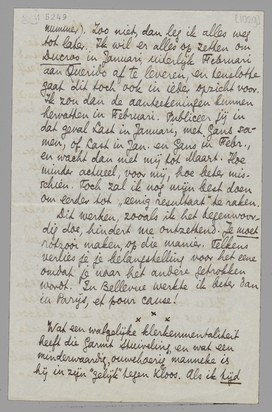 5249 [1029]
nummer). Zoo niet, dan leg ik alles weg
tot later. Ik wil er alles op zetten om
Ducroo in Januari, uiterlijk Februari
aan Querido af te leveren, en tenslotte
gaat dit toch ook in ieder opzicht voor.
Ik zou dan de aanteekeningen kunnen
hervatten in Februari. Publiceer jij in
dat geval Last in Januari, met Gans sa-
men, of Last in Jan. en Gans in Febr.,
en wacht dan met mij tot Maart. Hoe
minder actueel, voor mij, hoe beter mis-
schien. Toch zal ik nog mijn best doen
om eerder tot "eenig resultaat" te raken.
Dit werken, zooals ik het tegenwoor-
dig doe, hindert me ontzettend. Je moet
rotzooi maken, op die manier. Telkens
verlies je je belangstelling voor het eene
omdat je naar het andere getrokken
wordt. In Bellevue werkte ik beter dan
in Parijs, et pour cause!
x x x
Wat een walgelijke klerkenmentaliteit
heeft die Garmt Stuiveling, en wat een
minderwaardig, ouwehoerig manneke is
hij in zijn "gelijk" tegen Kloos. Als ik tijd